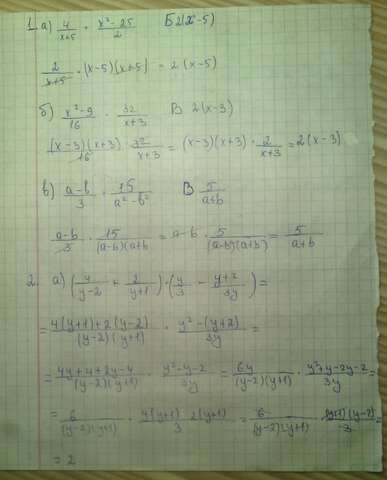 1. а) 4/(x+5) · (x²-25)/2   Б 2(x-5)
2/(x+5) · (x-5)(x+5) = 2(x-5)
б) (x²-9)/16 · 32/(x+3)   В 2(x-3)
(x-3)(x+3)/16 · 32/(x+3) = (x-3)(x+3) · 2/(x+3) = 2(x-3)
в) (a-b)/3 · 15/(a²-b²)   В 5/(a+b)
(a-b)/3 · 15/((a-b)(a+b) = a-b · 5/((a-b)(a+b)) = 5/(a+b)
2. а) (4/(y-2) + 2/(y+1)) · (y/3 - (y+2)/3y) =
= (4(y+1)+2(y-2))/((y-2)(y+1)) · (y²-(y+2))/3y =
= (4y+4+2y-4)/((y-2)(y+1)) · (y²-y-2)/3y = 6y/((y-2)(y+1)) · (y²+y-2y-2)/3y =
= 6/((y-2)(y+1)) · (y(y+1) 2(y+1))/3 = 6/((y-2)(y+1)) · (y+1)(y-2)/3
= 2